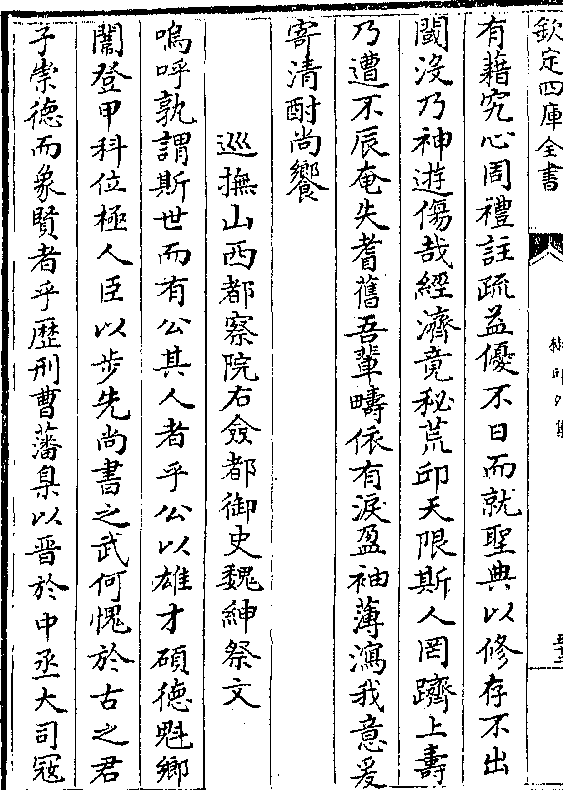 欽定四庫全書
有藉究心周禮註疏益優不日而就聖典以修存不出
閾没乃神遊傷哉經濟竟秘荒邱天限斯人罔躋上壽
乃遭不辰奄失耆舊吾軰疇依有淚盈袖薄瀉我意爰
寄清酎尚饗
巡撫山西都察院右僉都御史魏紳祭文
嗚呼孰謂斯世而有公其人者乎公以雄才碩徳魁鄉
闈登甲科位極人臣以步先尚書之武何愧於古之君
子崇德而象賢者乎歴刑曹藩臬以晋於中丞大司寇